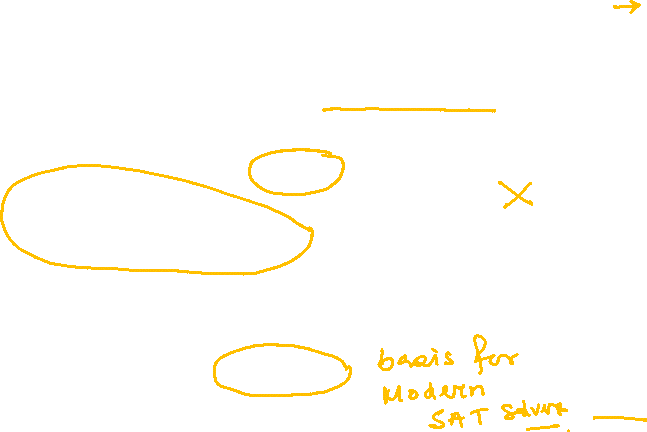 basis for
Modern
SAT solvers